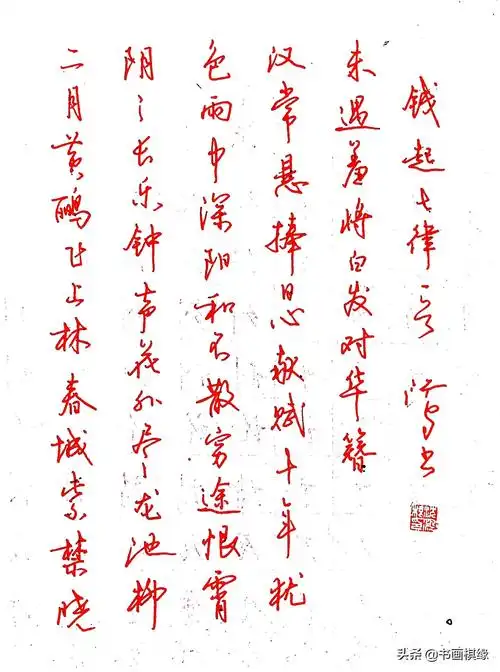 二月黄鹂飞上林春城紫禁晓
阴〻长乐钟声花外尽龙池柳
色雨中深阳和不散穷途恨霄
汉常悬捧日心献赋十年犹
未遇羞将白发对华簪
钱起七律一首 书
头条 @书画棋缘